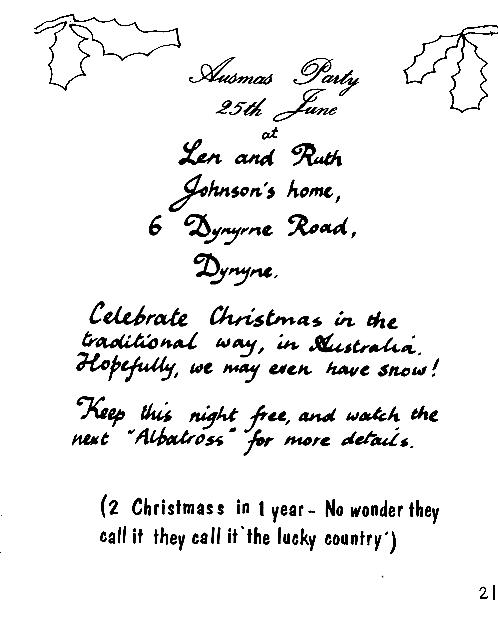 Ausmas Party
25th June
at
Len and Ruth
Johnson's home,
6 Dynyrne Road,
Dynyne.
Celebrate Christmas in the
traditional way, in Australia.
Hopefully, we may even have snow!
Keep this night free, and watch the
next "Albatross" for more details.
(2 Christmass in 1 year - No wonder they
call it they call it 'the lucky country')
21